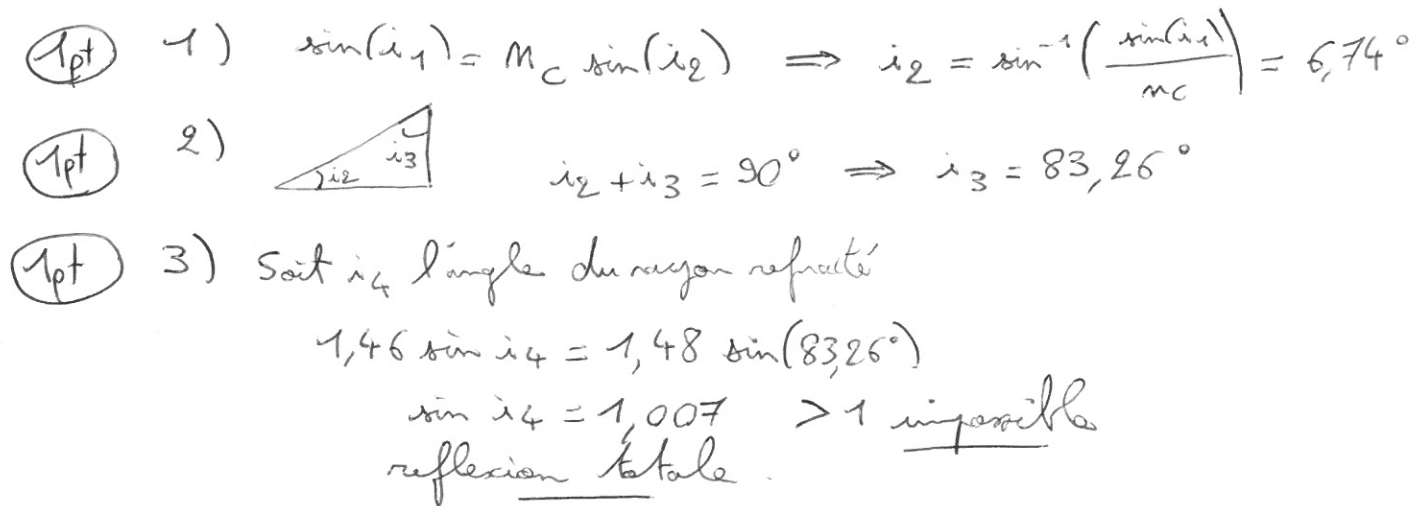 1pt 1) sin(i₁) = n_c sin(i₂) ⟹ i₂ = sin⁻¹(sin(i₁)/nc) = 6,74°
1pt 2) i₂ i₃ i₂ + i₃ = 90° ⟹ i₃ = 83,26°
1pt 3) Soit i₄ l'angle du rayon refracté
1,46 sin i₄ = 1,48 sin(83,26°)
sin i₄ = 1,007 > 1 impossible
reflexion totale.